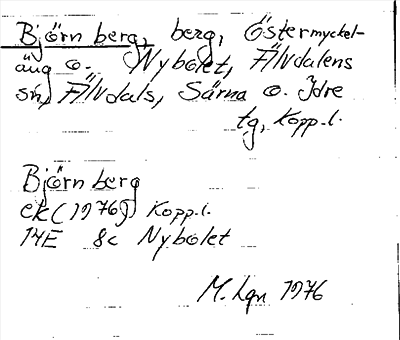 Björnberg, berg, Östermyckel-
äng o. Nybolet, Älvdalens
sn, Älvdals, Särna o. Idre
tg, Kopp.l.
Björnberg
ek (1976) Kopp.l.
14E 8c Nybolet
M. Lgn 1976